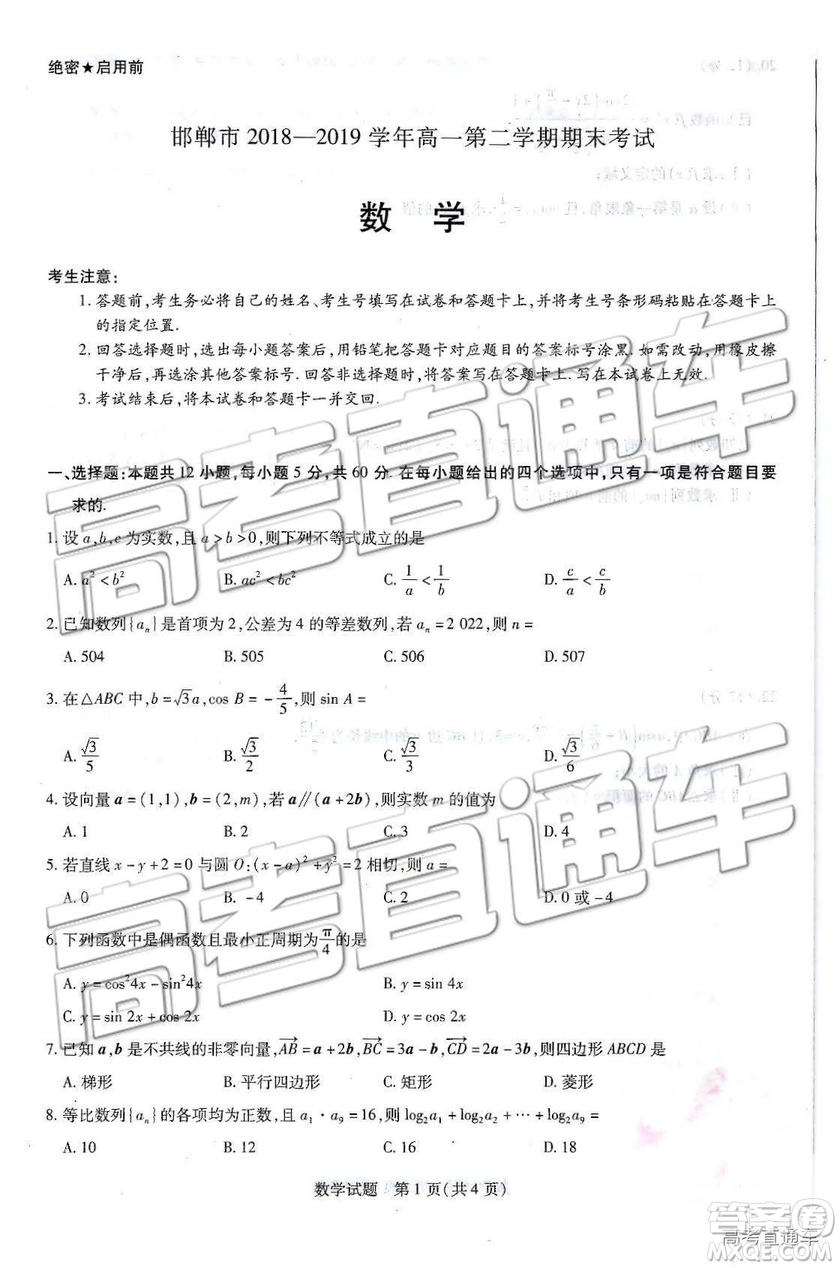 绝密★启用前
邯郸市 2018—2019 学年高一第二学期期末考试
数 学
考生注意:
1. 答题前,考生务必将自己的姓名、考生号填写在试卷和答题卡上,并将考生号条形码粘贴在答题卡上
的指定位置.
2. 回答选择题时,选出每小题答案后,用铅笔把答题卡对应题目的答案标号涂黑. 如需改动,用橡皮擦
干净后,再选涂其他答案标号. 回答非选择题时,将答案写在答题卡上. 写在本试卷上无效.
3. 考试结束后,将本试卷和答题卡一并交回.
一、选择题:本题共 12 小题,每小题 5 分,共 60 分. 在每小题给出的四个选项中,只有一项是符合题目要
求的.
1. 设 a,b,c 为实数,且 a>b>0,则下列不等式成立的是
A. a²<b² B. ac²<bc² C. 1/a<1/b D. c/a<c/b
2. 已知数列{aₙ}是首项为 2,公差为 4 的等差数列,若 aₙ=2 022,则 n=
A. 504 B. 505 C. 506 D. 507
3. 在△ABC 中,b=√3a,cos B=-4/5,则 sin A=
A. √3/5 B. √3/2 C. √3/3 D. √3/6
4. 设向量 a=(1,1),b=(2,m),若 a∥(a+2b),则实数 m 的值为
A. 1 B. 2 C. 3 D. 4
5. 若直线 x-y+2=0 与圆 O:(x-a)²+y²=2 相切,则 a=
A. 0 B. -4 C. 2 D. 0 或-4
6. 下列函数中是偶函数且最小正周期为π/4的是
A. y=cos²4x-sin²4x B. y=sin 4x
C. y=sin 2x+cos 2x D. y=cos 2x
7. 已知 a,b 是不共线的非零向量,AB→=a+2b,BC→=3a-b,CD→=2a-3b,则四边形 ABCD 是
A. 梯形 B. 平行四边形 C. 矩形 D. 菱形
8. 等比数列{aₙ}的各项均为正数,且 a₁·a₉=16,则 log₂a₁+log₂a₂+…+log₂a₉=
A. 10 B. 12 C. 16 D. 18
数学试题 第 1 页(共 4 页)
高考直通车
高考直通车
答案卷
高考直通车
MXQE.COM